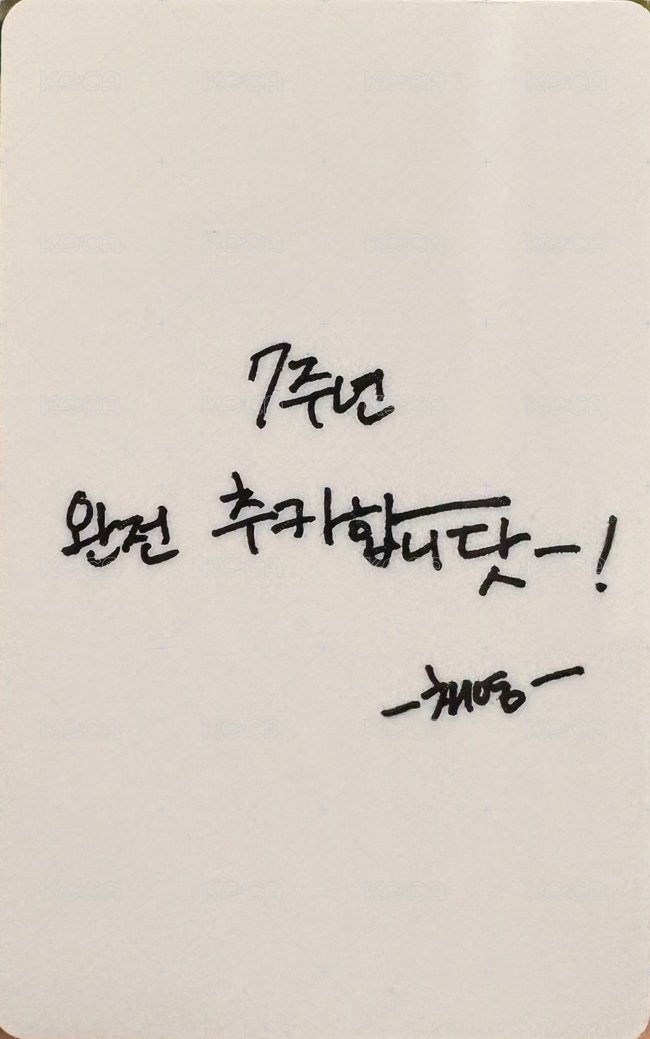 7주년
완전 추카합니닷-!
-채영-
KOCA KOCA KOCA KOCA
KOCA KOCA KOCA KOCA
KOCA KOCA KOCA KOCA
KOCA KOCA KOCA KOCA
KOCA KOCA KOCA KOCA
KOCA KOCA KOCA KOCA